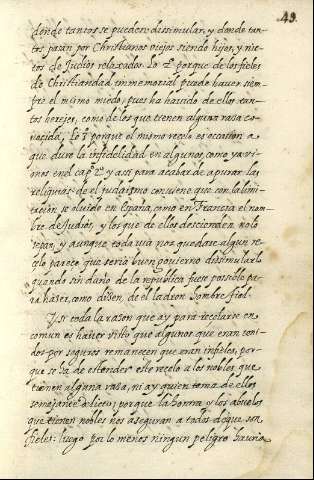 49.
donde tantos se pueden dissimular, y donde tan-
tos pasan por Christianos viejos siendo hijos, y nie-
tos de Judios relaxados. Lo 2º porque de los fieles
de Christiandad immemorial puede haver siem-
pre el mismo miedo, pues ha havido de ellos tan-
tos herejes, como de los que tienen alguna rasa co-
nocida, Lo 3º porque el mismo recelo es occasion a
que dure la infidelidad en algunos, como ya vi-
mos en el capº 2º y assi para acabar de apurar las
reliquias de el judaismo conviene que con la limi-
tacion se olvide en España, como en Francia el nom-
bre de Judios, y los que de ellos descienden no lo
sepan, y aunque toda via nos quedase algun re-
celo parece que seria buen govierno dissimularlo
quando sin daño de la republica fuese possible pa-
ra haser, como disen, de el ladron hombre fiel.
Y si toda la rason que ay para recelarse en
comun es haver visto que algunos que eran teni-
dos por seguros remanecen que eran infieles, por-
que se ha de estender este recelo a los nobles que
tienen alguna rasa, ni ay quien tema de ellos
semejante delicto; porque la honra y los abuelos
que tienen nobles nos aseguran a todos de que son
fieles: luego por lo menos ningun peligro havria